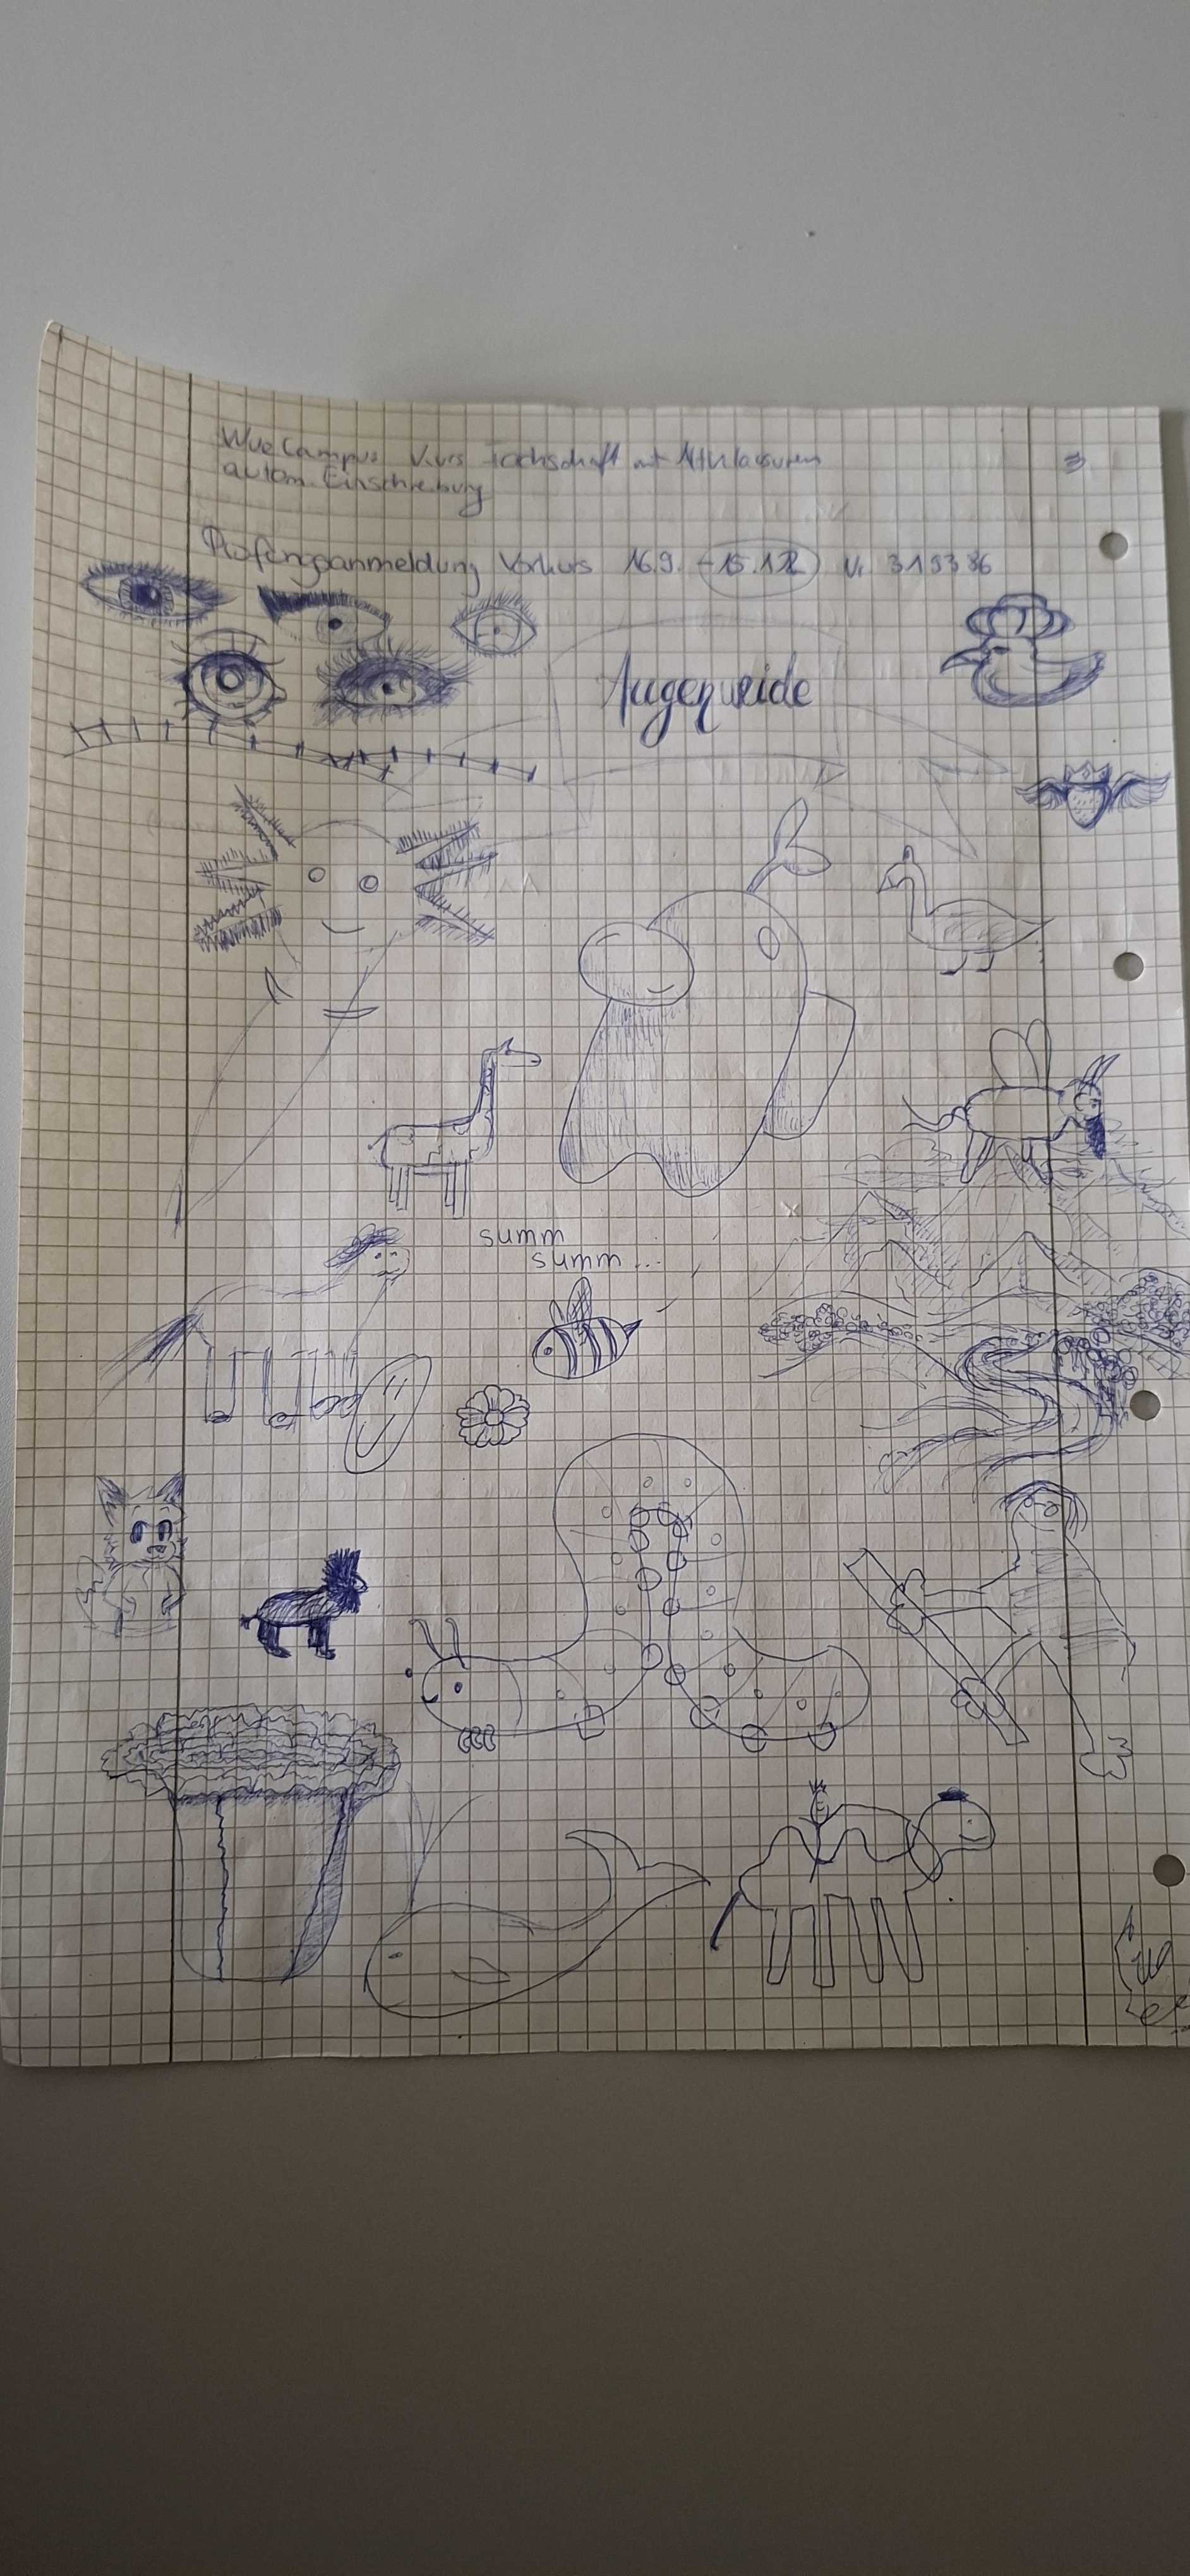 WueCampus Kurs Fachschaft mit Altklausuren 3
autom. Einschreibung
Prüfungsanmeldung Vorkurs 16.9. - 15.12 Nr. 319386
Augenweide
summ
summ...